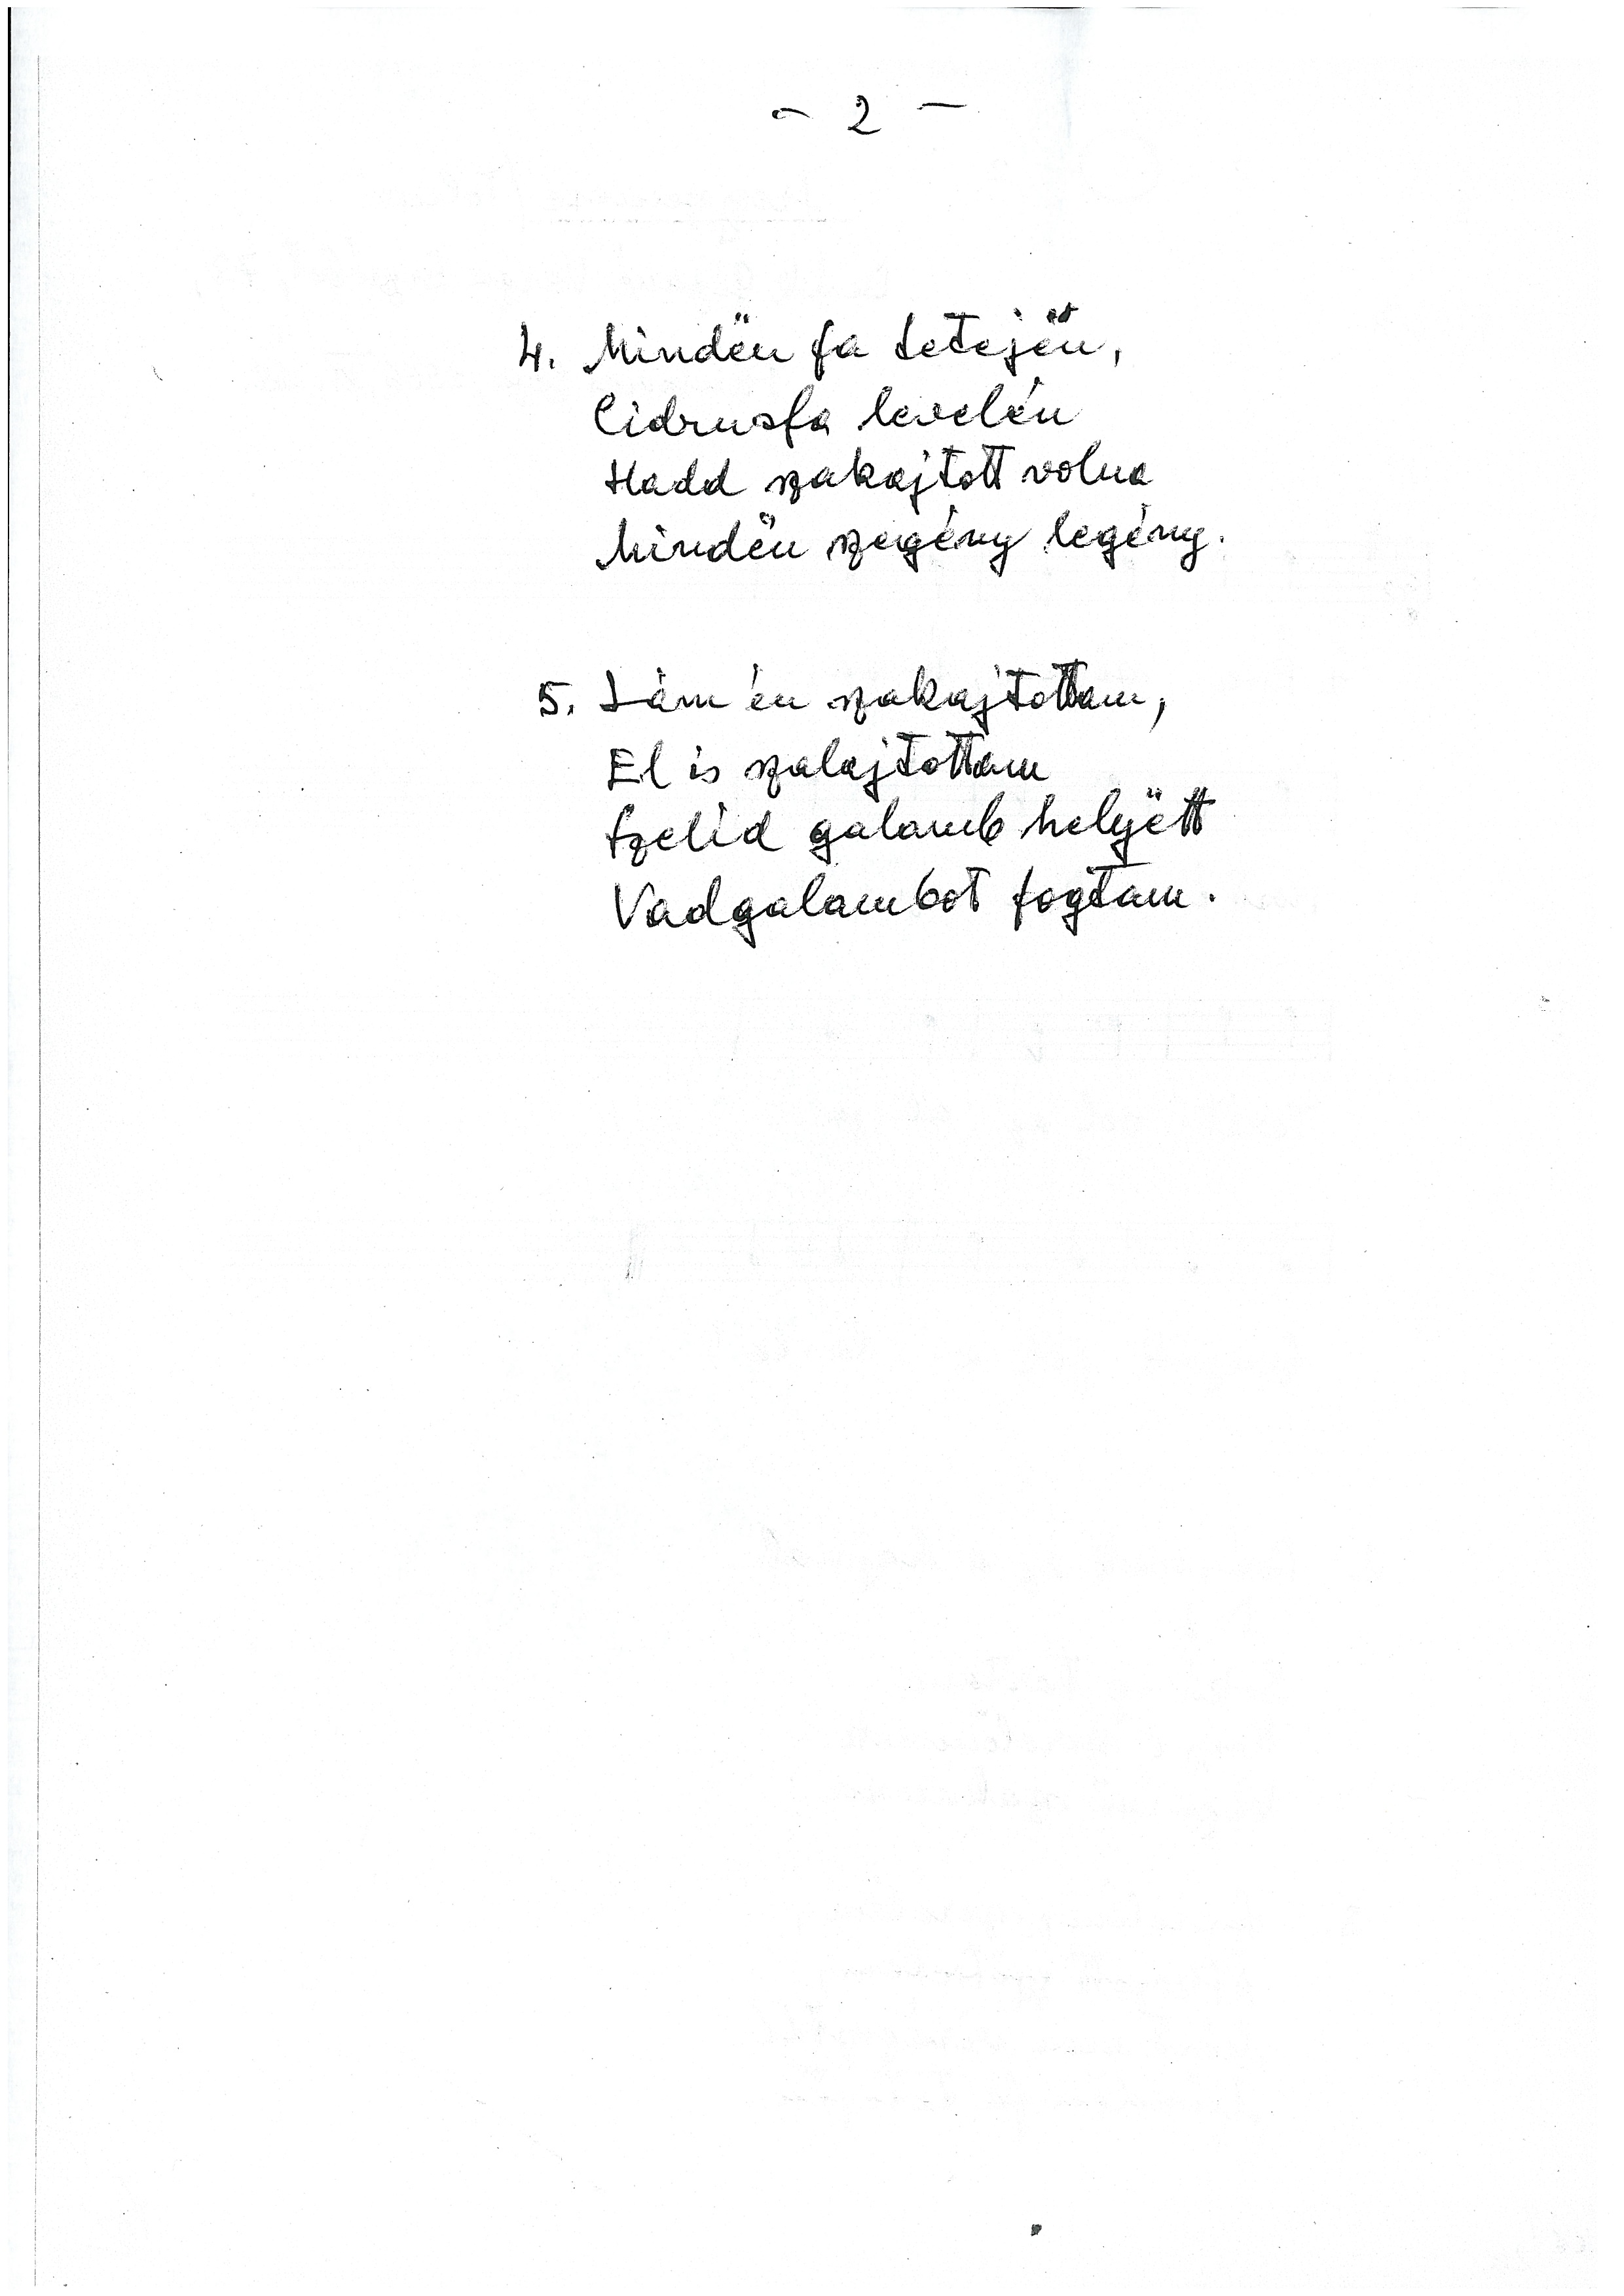 - 2 -
4. Mindën fa tetejën,
Cidrusfa levelén
Hadd szakajtott volna
Mindën szegény legény.
5. Lám én szakajtottam,
El is szalajtottam
Szelíd galamb helyëtt
Vadgalambot fogtam.